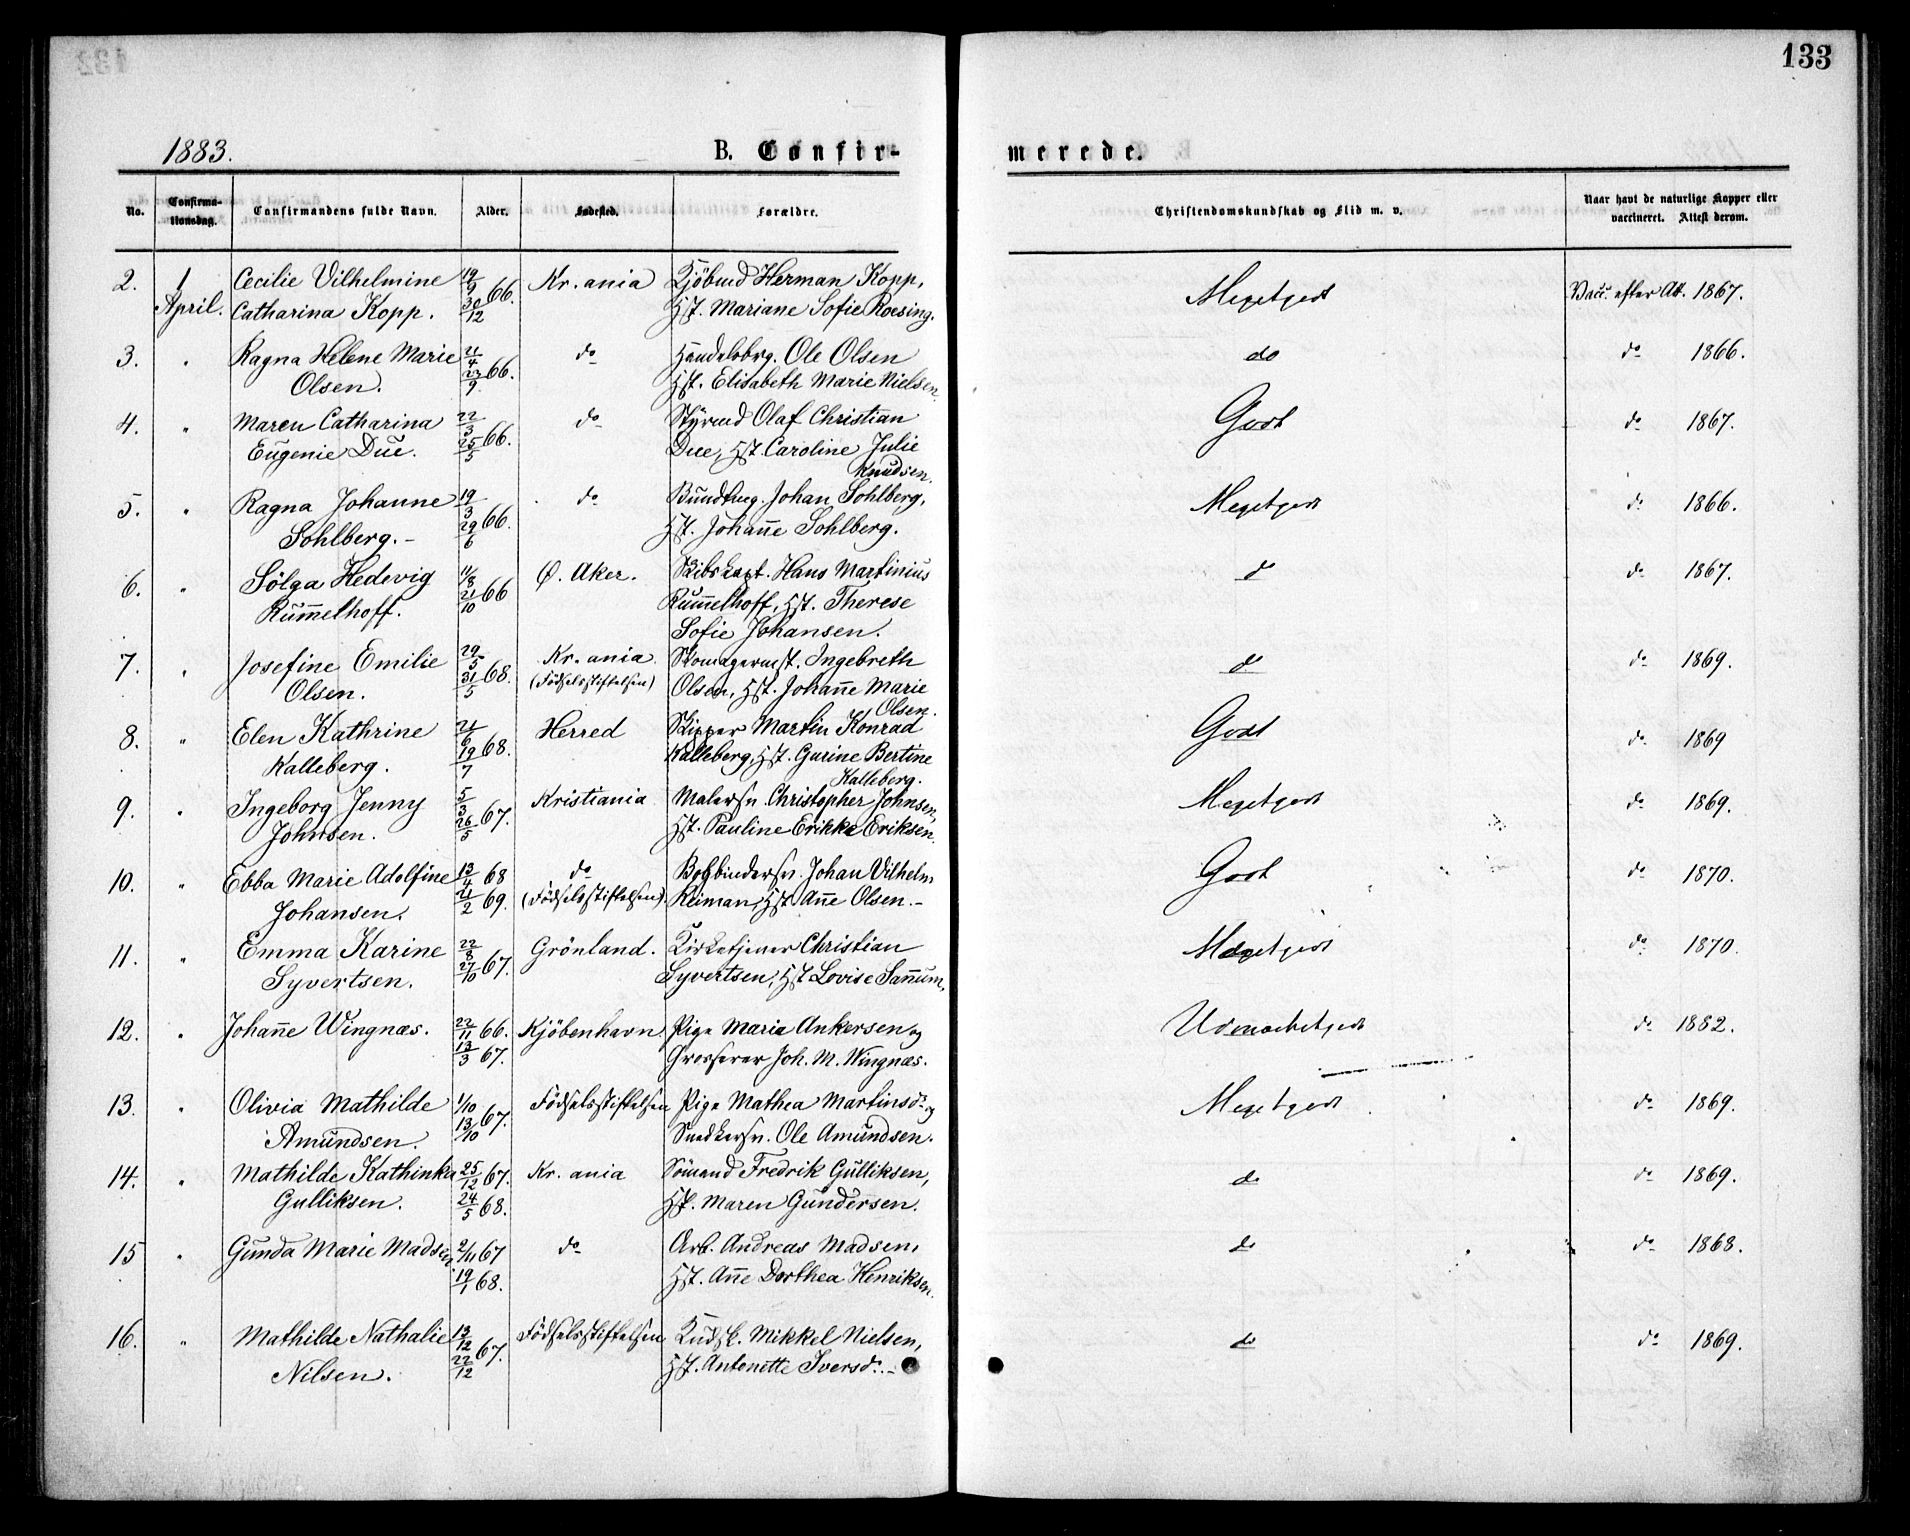 133
1883.
B. Confir-
merede.
No.
Confirma-
tionsdag.
Confirmandens fulde Navn.
Alder.
Fødested.
Forældre.
Christendomskundskab og Flid m. v.
Naar havt de naturlige Kopper eller
vaccineret. Attest derom.
2. 1 Cecilie Vilhelmine 19/9 66. Kr.ania Kjöbmd Herman Kopp, Megetgodt Vacc. efter Att. 1867.
April. Catharina Kopp. 30/12 Hst. Mariane Sofie Roesing.
3. " Ragna Helene Marie 21/4 66. do Handelsbrg. Ole Olsen do do 1866.
Olsen. 23/9 Hst. Elisabeth Marie Nielsen.
4. " Maren Catharina 22/3 66. do Styrmd Olaf Christian Godt do 1867.
Eugenie Due. 25/5 Due, Hst. Caroline Julie
Knudsen.
5. " Ragna Johanne 19/3 66. do Johan Sohlberg, Megetgodt do 1866.
Sohlberg.- 29/6 Hst. Johanne Sohlberg.
6. " Sölga Hedevig 11/8 66 Ø. Aker. Skibskapt. Hans Martinius do do 1867.
Rummelhoff. 21/10 Rummelhoff, Hst. Therese
Sofie Johansen.
7. " Josefine Emilie 29/5 68. Kr.ania Skomagermst. Ingebreth do do 1869.
Olsen. 31/5 (Födselsstiftelsen) Olsen, Hst. Johanne Marie
Olsen.
8. " Elen Kathrine 21/6 68. Herred Skipper Martin Konrad Godt do 1869
Kalleberg. 19/7 Kalleberg, Hst. Gurine Bertine
Kalleberg.
9. " Ingeborg Jenny 5/3 67. Kristiania Malersv. Christopher Johnsen, Megetgodt do 1869.
Johnsen. 26/5 Hst. Pauline Erikke Eriksen.
10. " Ebba Marie Adolfine 13/4 68 do Bogbindersv. Johan Vilhelm Godt do 1870.
Johansen. 21/2 69. (Födselsstiftelsen). Reiman, Hst. Anne Olsen.-
11. " Emma Karine 22/8 67. Grönland. Kirketjener Christian Megetgodt do 1870.
Syvertsen. 27/10 Syvertsen, Hst. Lovise Sannum.
12. " Johanne Wingnæs. 22/11 66. Kjöbenhavn Pige Maria Ankersen og Udmærketgodt do 1882.
13/3 67. Grosserer Joh. M. Wingnæs.
13. " Olivia Mathilde 1/10 67. Födselsstiftelsen Pige Mathea Martinsdr. og Megetgodt do 1869.
Amundsen. 13/10 Snedkersv. Ole Amundsen.
14. " Mathilde Kathinka 25/12 67. Kr.ania Sömand Fredrik Gulliksen, do do 1869.
Gulliksen. 24/5 68. Hst. Maren Gundersen.
15 " Gunda Marie Madsen. 2/11 67 do Arb. Andreas Madsen, do do 1868.
19/1 68. Hst. Anne Dorthea Henriksen.
16. " Mathilde Nathalie 13/12 67. Födselsstiftelsen Kudsk. Mikkel Nielsen, do do 1869.
Nilsen. 22/12 Hst. Antonette Iversdr.-